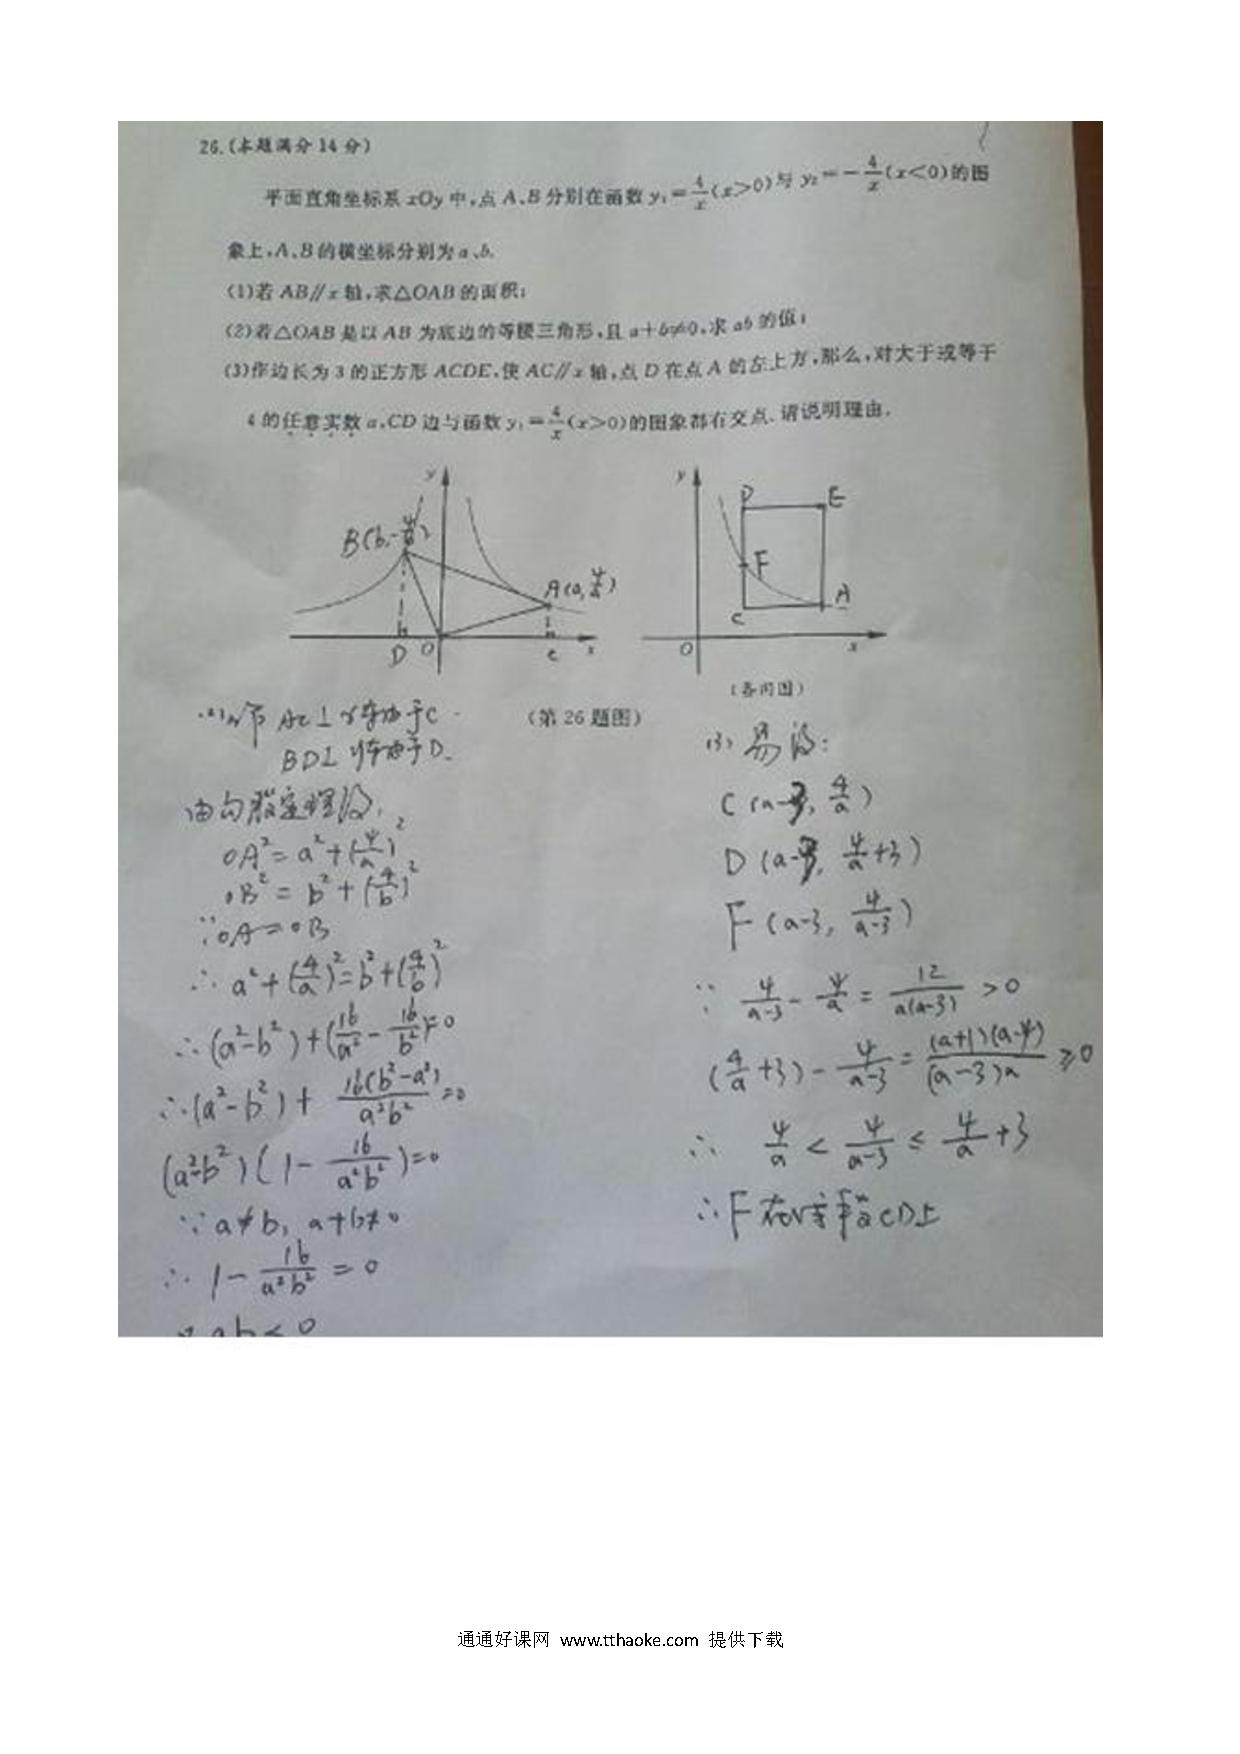 26.(本题满分14分)
平面直角坐标系xOy中,点A、B分别在函数y₁=4/x(x>0)与y₂=-4/x(x<0)的图
象上,A、B的横坐标分别为a、b.
(1)若AB∥x轴,求△OAB的面积;
(2)若△OAB是以AB为底边的等腰三角形,且a+b≠0,求ab的值;
(3)作边长为3的正方形ACDE,使AC∥x轴,点D在点A的左上方,那么,对大于或等于
4的任意实数a,CD边与函数y₁=4/x(x>0)的图象都有交点.请说明理由.
y
B(b,-4/b)
A(a,4/a)
D
O
C
x
y
D
E
F
A
C
O
x
(备用图)
(第26题图)
(2) 作 AC⊥x轴于C
BD⊥x轴于D.
由勾股定理得,
OA²=a²+(4/a)²
OB²=b²+(4/b)²
∵OA=OB
∴a²+(4/a)²=b²+(4/b)²
∴(a²-b²)+(16/a²-16/b²)=0
∴(a²-b²)+16(b²-a²)/a²b²=0
(a²-b²)(1-16/a²b²)=0
∵a≠b, a+b≠0
∴1-16/a²b²=0
∵ab<0
(3) 易得:
C(a-3, 4/a)
D(a-3, 4/a+3)
F(a-3, 4/(a-3))
∵4/(a-3)-4/a=12/a(a-3)>0
(4/a+3)-4/(a-3)=(a+1)(a-4)/(a-3)a≥0
∴4/a<4/(a-3)≤4/a+3
∴F在线段CD上
通通好课网 www.tthaoke.com 提供下载